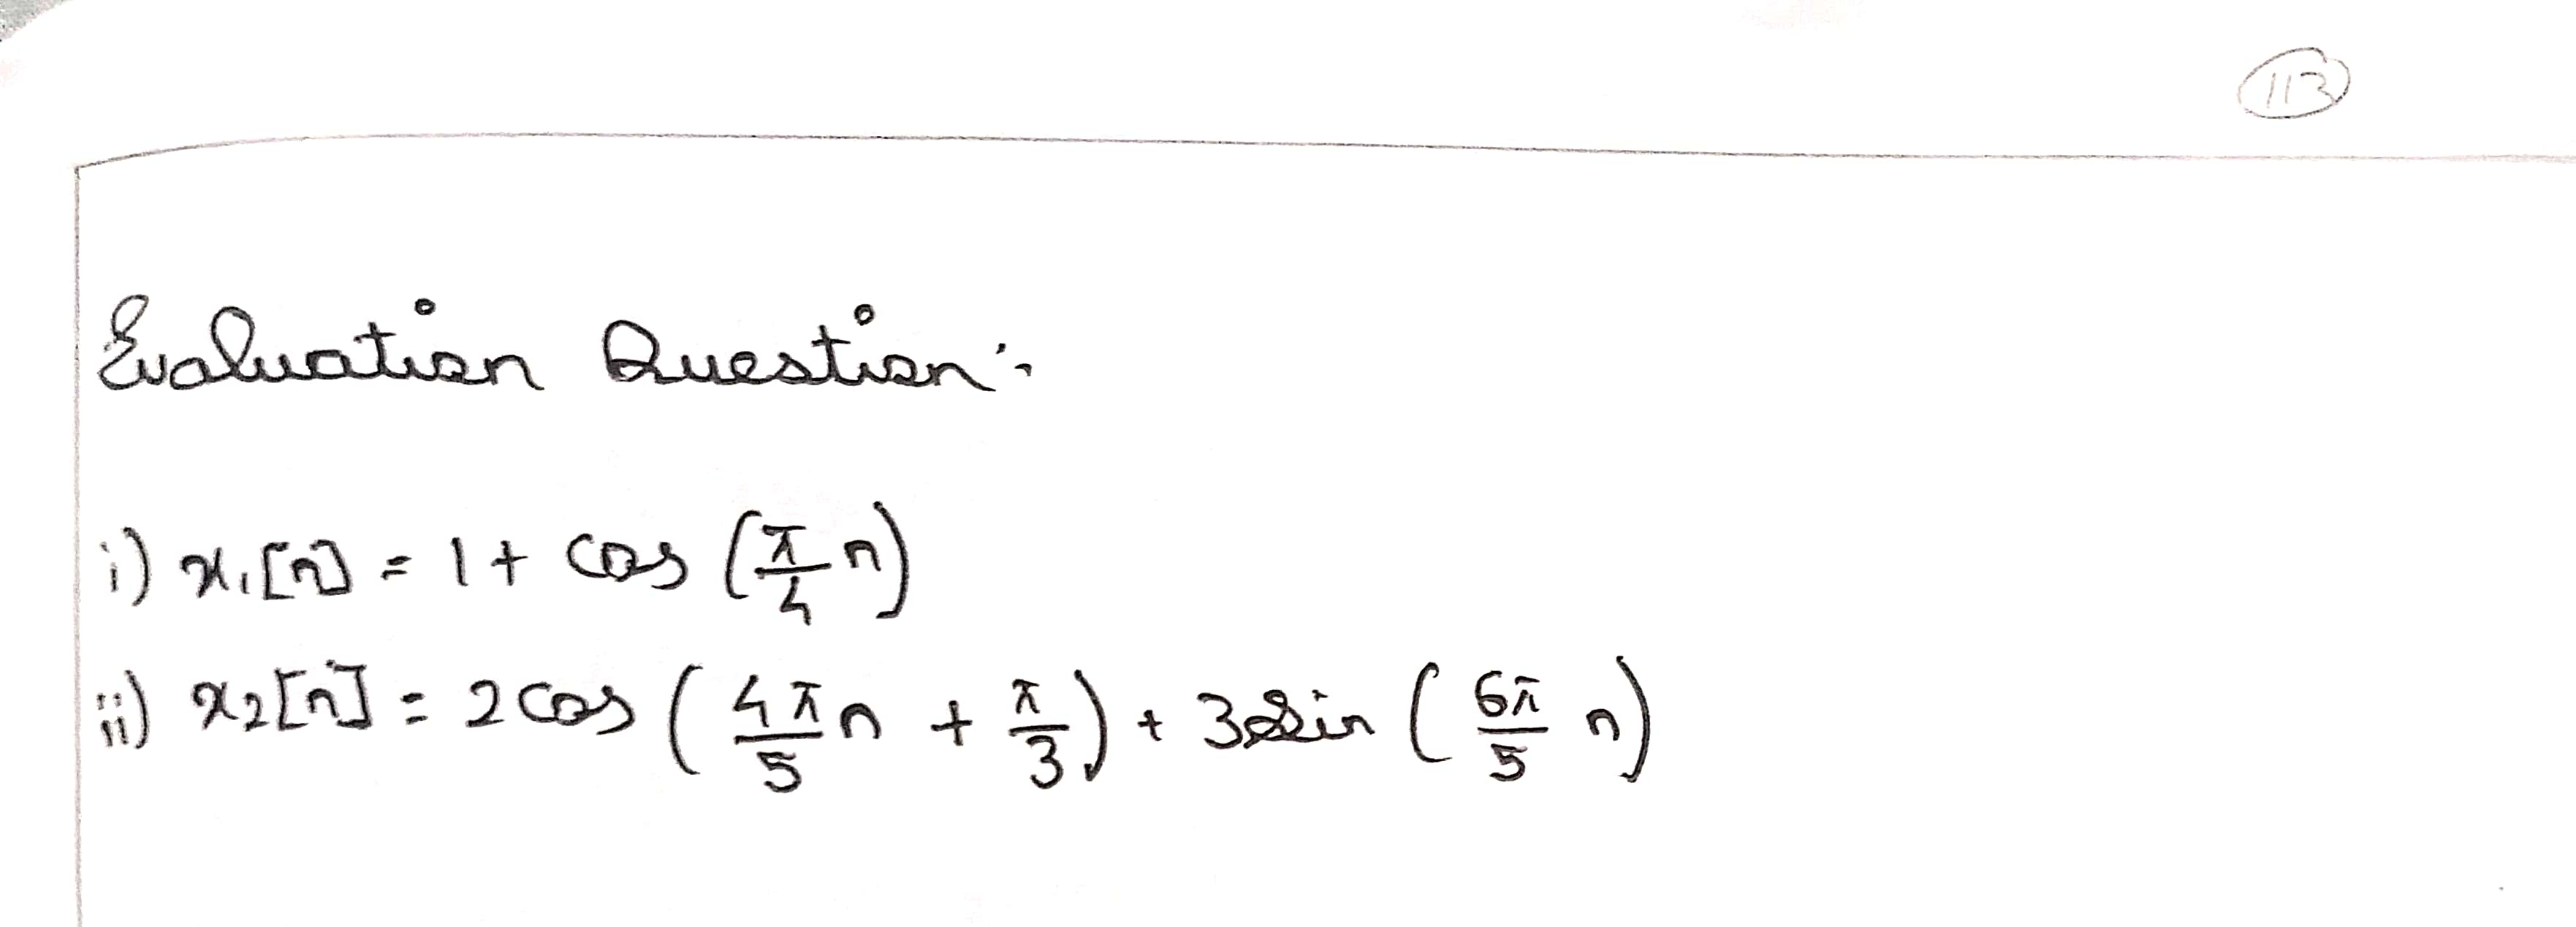 113
Evaluation Question:-
i) x₁[n] = 1 + cos (π/4 n)
ii) x₂[n] = 2 cos (4π/5 n + π/3) + 3 sin (6π/5 n)